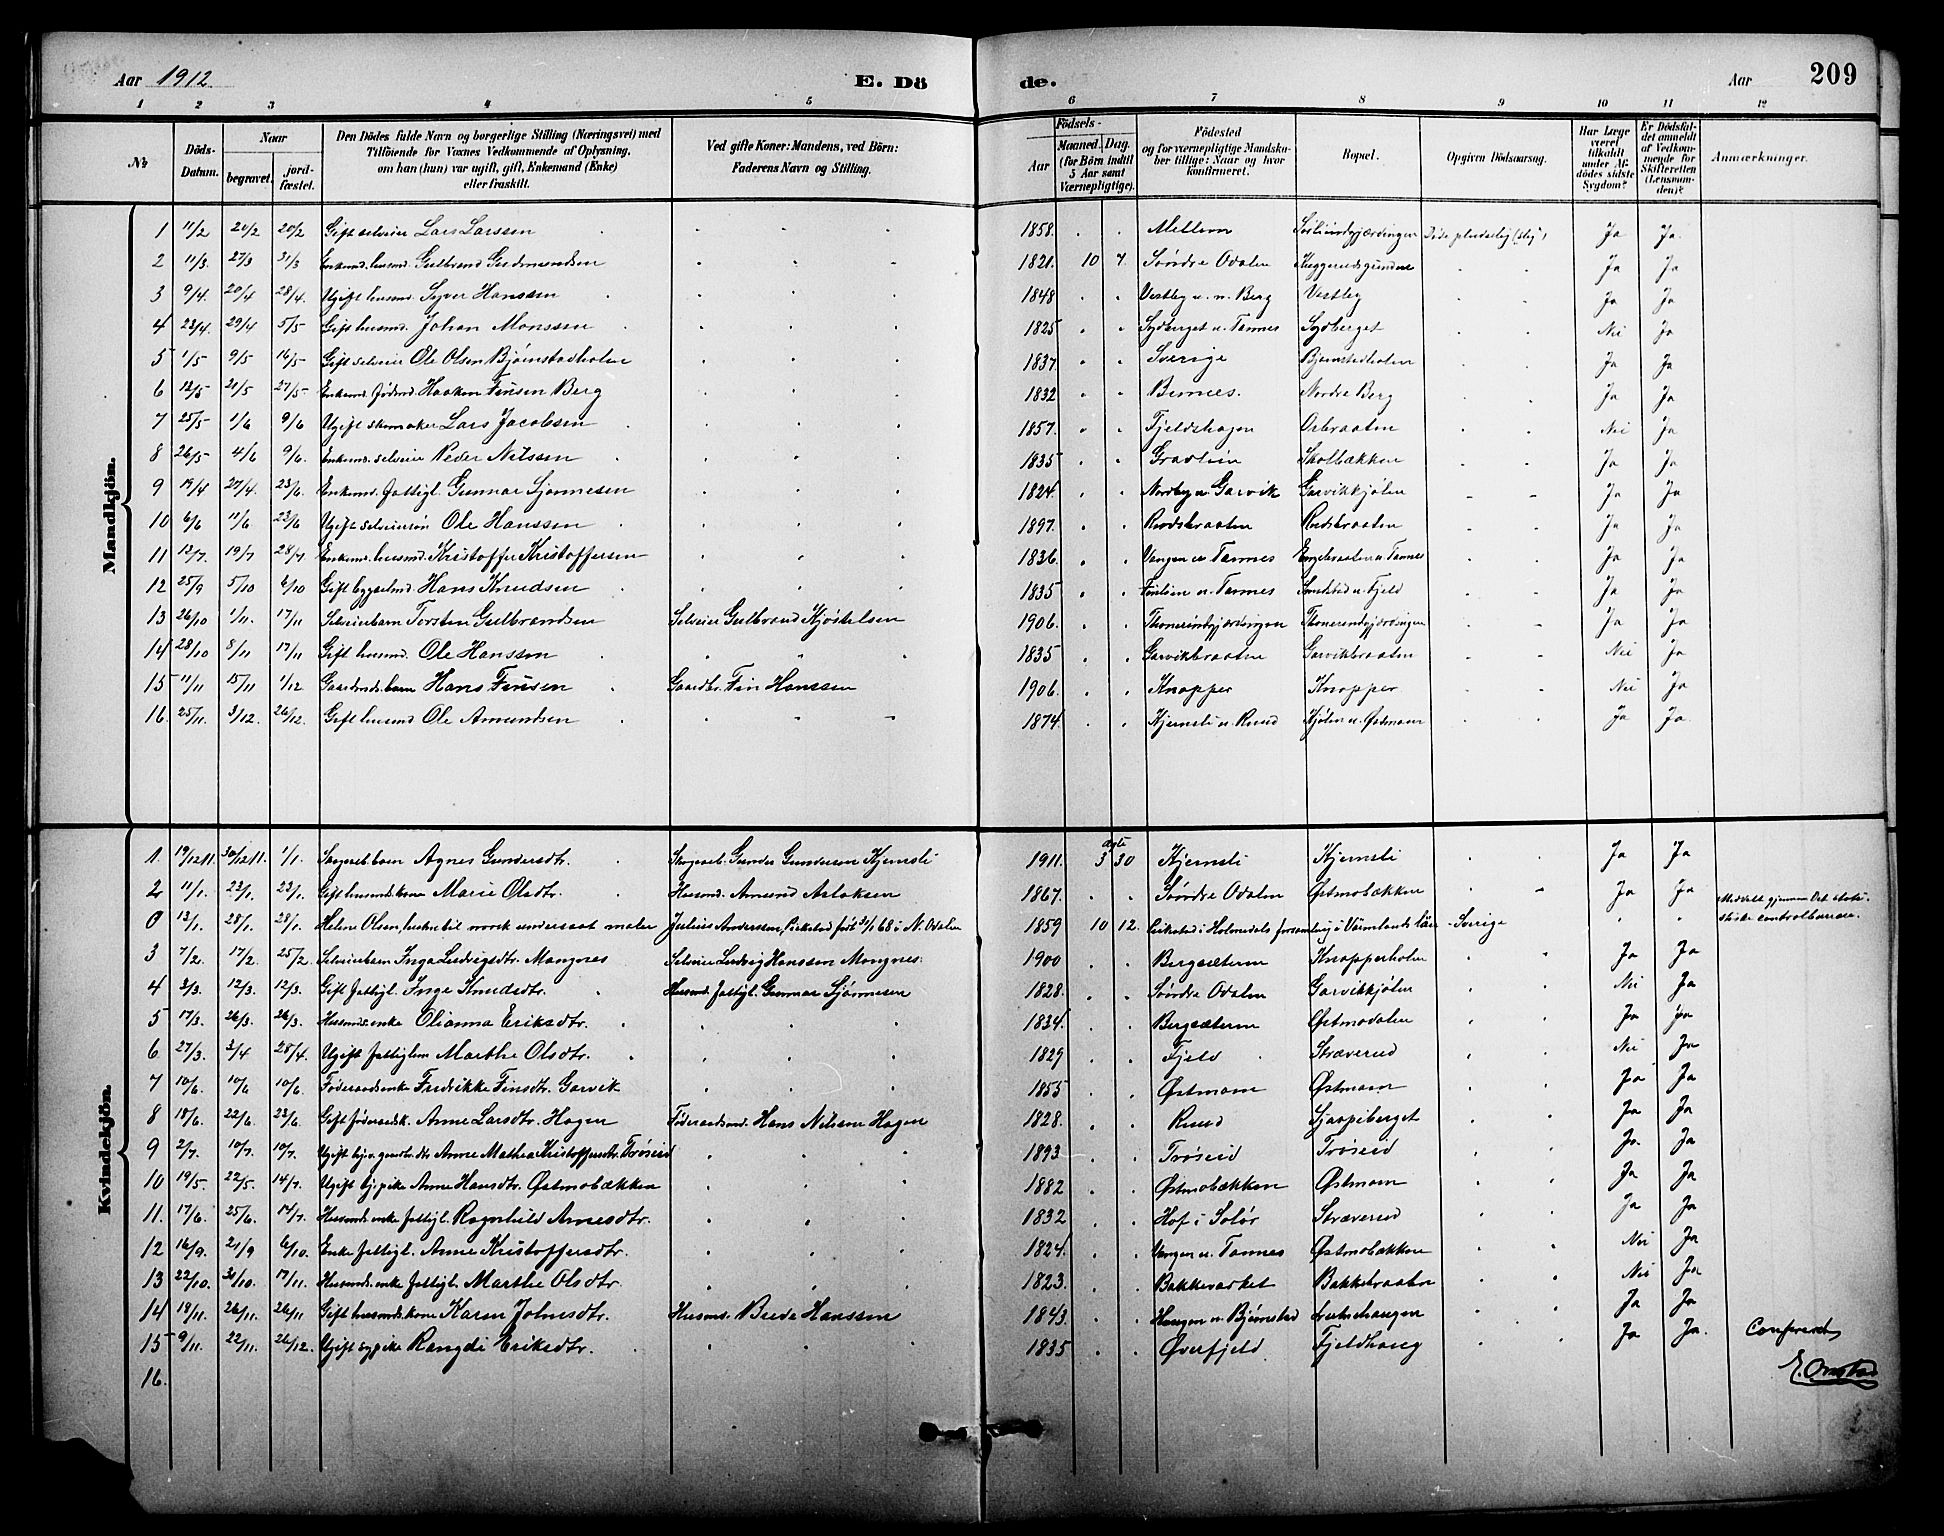 Aar 1912. E. Dö de. Aar 209
1 2 3 4 5 6 7 8 9 10 11 12
№ Döds-Datum. Naar begravet. jord-fæstet. Den Dödes fulde Navn og borgerlige Stilling (Næringsvei) med Tilföiende for Voxnes Vedkommende af Oplysning, om han (hun) var ugift, gift, Enkemand (Enke) eller fraskilt. Ved gifte Koner: Mandens, ved Börn: Faderens Navn og Stilling. Födsels- Aar Maaned. Dag. (for Börn indtil 5 Aar samt Værnepligtige). Födested og for værnepligtige Mandskaber tillige: Naar og hvor konfirmeret. Bopæl. Opgiven Dödsaarsag. Har Læge været tilkaldt under Afdödes sidste Sygdom? Er Dödsfaldet anmeldt af Vedkommende for Skifteretten (Lensmanden)? Anmærkninger.
Mandkjön.
1 11/2 20/2 20/2 Gift selveier Lars Larssen 1858. Mellem Ja Ja.
2 11/3. 27/3 31/3 Enkemd. husmd. Gulbrand Gudmundsen 1821. 10 7. Söndre Odalen Ja Ja
3 9/4. 20/4 28/4. Ugift husmd. Syver Hanssen 1848 Vestby u. n. Berg Vestby Ja Ja
4 23/4. 29/4 5/5 Gift husmd. Johan Monssen 1825 Sydberget u. Tannes Sydberget Nei Ja
5 1/5 9/5 16/5 Gift selveier Ole Olsen Bjørnstadholen 1837. Sverige Bjørnstadholen Ja Ja
6 12/5 21/5 27/5 Enkemd. föderd. Haakon Finsen Berg 1832 Nordre Berg Ja Ja
7 25/5 1/6 9/6 Ugift skomaker Lars Jacobsen 1857. Fjeldshagen Nei Ja
8 26/5 4/6 9/6. Enkemd. selveier Peder Nilssen 1835 Skolbækken Ja Ja
9 19/4 27/4. 23/6. Enkemd. fattigl. Gunnar Sjønnesen 1824. Nordby u. Garvik Garvikkjølen Ja Ja
10 6/6 11/6. 23/6 Ugift selveiersøn Ole Hanssen 1897. Rudsbraaten Rudsbraaten Ja Ja
11 12/7. 19/7 28/7 Enkemd. husmd. Kristoffer Kristoffersen 1836. Vangen u. Tannes Engebraaten u. Tannes Ja Ja
12 25/9 5/10 6/10 Gift bygselmd. Hans Knudsen 1835 u. Tannes u. Fjeld Ja Ja
13 26/10 1/11. 17/11 Selveierbarn Torsten Gulbrandsen Selveier Gulbrand Kjøstelsen 1906. Ja Ja
14 28/10 8/11 17/11 Gift husmd. Ole Hanssen 1835 Garvikbraaten Garvikbraaten Nei Ja
15 11/11 15/11 1/12 Gaardmds. barn Hans Finsen Gaardbr. Fin Hanssen 1906. Knapper Knapper Nei Ja
16. 25/11. 3/12. 26/12. Gift husmd Ole Amundsen 1874. Kjernsli u. Ruud Kjølen u. Østmoen Ja Ja.
Kvindekjön.
1. 19/12 11. 30/12 11. 1/1. barn Agnes Gundersdtr. Gunder Gundersen Kjernsli 1911. 3 30 Kjernsli Kjernsli Ja Ja
2 11/1. 23/1. 23/1. Gift husmdskone Marie Olsdtr. Husmd. Amund Aslaksen 1867. Söndre Odalen Østmobækken Ja Ja
0 13/1. 28/1. 28/1. Helene Olsen, hustru til norsk undersaat maler Julius Anderssen, Pirkstad født 30/1 68 i N. Odalen 1859 10 12. i Holmedals forsamling i Värmlands län Sverige Meddelt gjennem Det statistiske centralbureau.
3 7/2. 17/2. 25/2. Selveierbarn Inga Ludvigsdtr. Mangnes Selveier Ludvig Hanssen Mangnes. 1900 Bergsæteren Knapperholen Ja Ja
4 3/3. 12/3. 12/3. Gift fattigl. Inge Knudsdtr. Husmd. fattigl. Gunnar Sjønnesen 1828. Söndre Odalen Garvikkjølen Nei Ja
5 17/3. 26/3. 26/3. Husmdsenke Olianna Eriksdtr. 1834. Bergsæteren Østmodalen Ja Ja
6 27/3. 3/4 28/4. Ugift fattiglem Marthe Olsdtr. 1829 Fjeld Stræverud Nei Ja
7 10/6. 10/6 10/6. Føderaadsenke Fredrikke Finsdtr. Garvik 1855 Østmoen Østmoen Ja Ja
8 18/6. 22/6. 23/6. Gift føderaadsk. Anne Larsdtr. Hagen Føderaadsmd. Hans Nilsen Hagen 1828. Ruud Sjaapiberget Ja Ja
9 2/7. 10/7. 10/7. Ugift Anne Mathea Kristoffersdtr. Trøseid 1893 Trøseid Trøseid Ja. Ja
10 19/5. 22/5. 14/7. Ugift Anne Hansdtr. Østmobækken 1882 Østmobækken Østmoen Ja Ja
11. 17/6. 25/6. 14/7. Husmdsenke fattigl. Ragnhild Arnesdtr. 1832 Hof i Solør Stræverud Ja Ja
12 16/9. 21/9 6/10. Enke fattigl. Anne Kristoffersdtr. 1824. Vangen u. Tannes Østmobækken Nei Ja
13 22/10. 31/10. 17/11. Husmdsenke fattigl. Marthe Olsdtr. 1823. Bakkeværket Bakkebraaten Nei Ja
14 19/11. 26/11. 26/11 Gift husmdskone Karen Johnsdtr. Husmd. Brede Hanssen 1843. Haugen u. Bjørnstad Ja Ja
15 9/11. 22/11. 26/12. Ugift sypike Rangdi Eriksdtr. 1835 Øverfjeld Fjeldhaug Ja Ja. Confereret
16.
E. Onstad